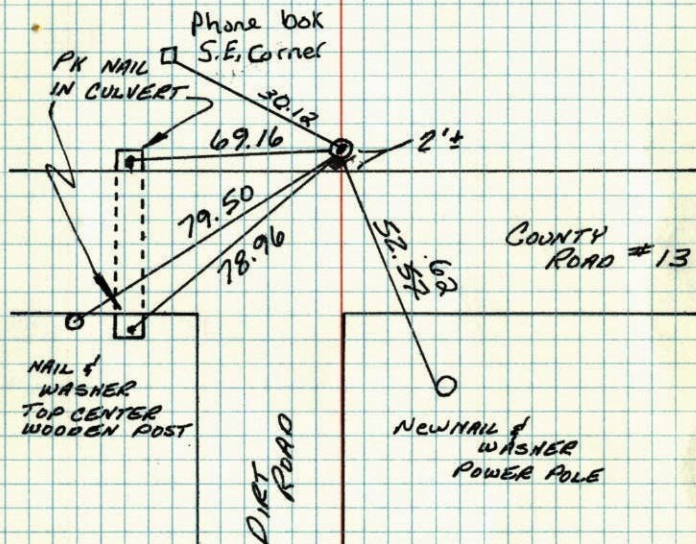 Phone box
S.E. Corner
PK NAIL
IN CULVERT
30.12
69.16
2'±
79.50
78.96
52.57
.62
COUNTY
ROAD #13
NAIL &
WASHER
TOP CENTER
WOODEN POST
NEW NAIL &
WASHER
POWER POLE
DIRT
ROAD